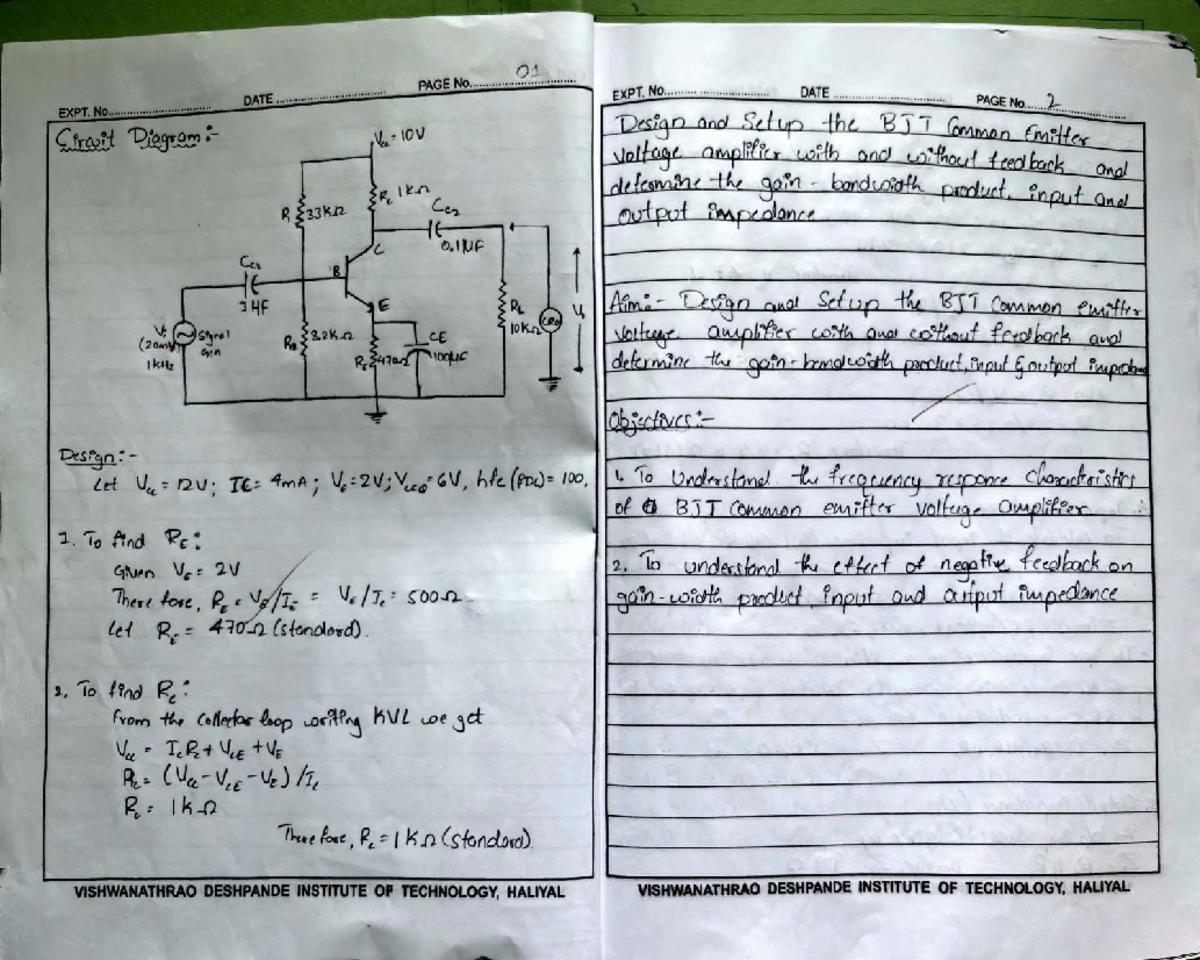 EXPT. No. DATE PAGE No. 01
Circuit Diagram:-
Vcc = 10V
R1 33KΩ
Rc 1KΩ
Cc2
0.1μF
C
B
E
Cc1
Vs
(20mV)
1kHz
Signal
Gen
RE 470Ω
CE
100μF
RL
10KΩ
CRO
Vo
Design:-
Let Vcc = 12V; IC = 4mA; VE = 2V; VCEQ = 6V, hfe (βDC) = 100,
1. To find RE:
Given VE = 2V
Therefore, RE = VE/IE = VE/Ic = 500Ω
Let RE = 470Ω (standard).
2. To find Rc:
From the collector loop writing KVL we get
Vcc = IcRc + VCE + VE
Rc = (Vcc - VCE - VE) / Ic
Rc = 1kΩ
Therefore, Rc = 1KΩ (standard).
VISHWANATHRAO DESHPANDE INSTITUTE OF TECHNOLOGY, HALIYAL
EXPT. No. DATE PAGE No. 2
Design and Setup the BJT Common Emitter
voltage amplifier with and without feedback and
determine the gain - bandwidth product, input and
output impedance
Aim:- Design and Setup the BJT common emitter
voltage amplifier with and without feedback and
determine the gain-bandwidth product, input & output impedance
Objectives:-
1. To Understand the frequency responce characteristics
of BJT Common emitter voltage amplifier
2. To understand the effect of negative feedback on
gain-width product, input and output impedance
VISHWANATHRAO DESHPANDE INSTITUTE OF TECHNOLOGY, HALIYAL